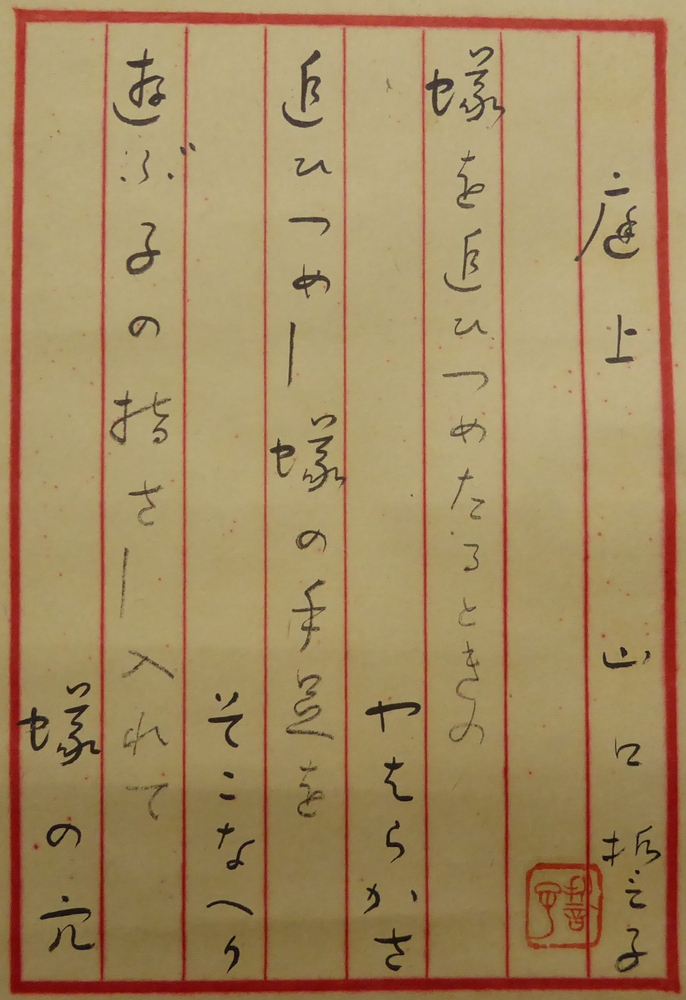 庭上 山口誓子
蟻を追ひつめたるときの
やはらかさ
追ひつめし蟻の手足を
そこなへり
遊ぶ子の指さし入れて
蟻の穴
誓子